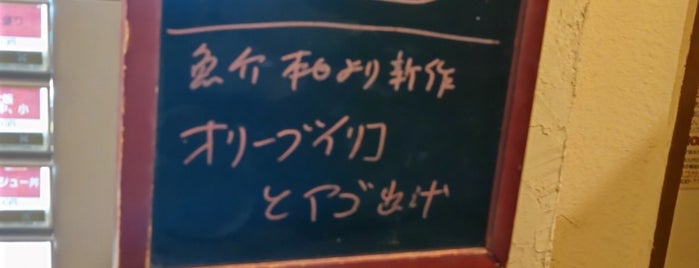 魚介 本日より新作
オリーブイリコ
とアゴ出汁
小
シュー丼